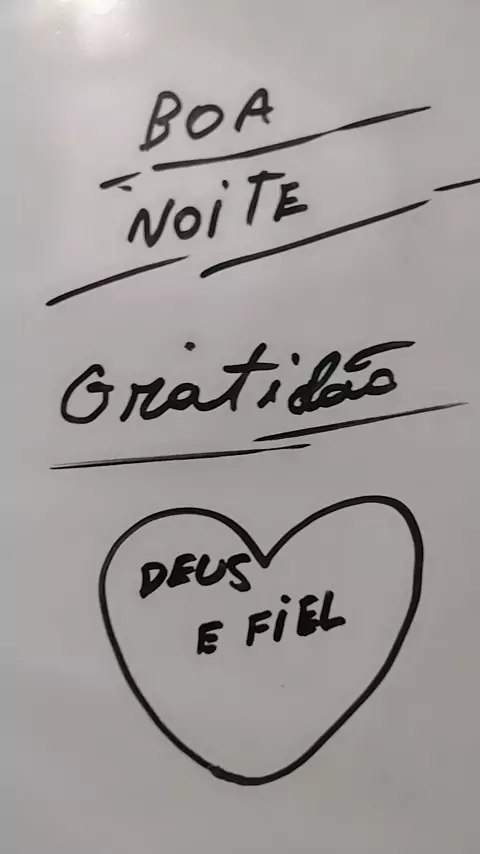 BOA
NOiTE
Gratidão
DEUS
E FiEL